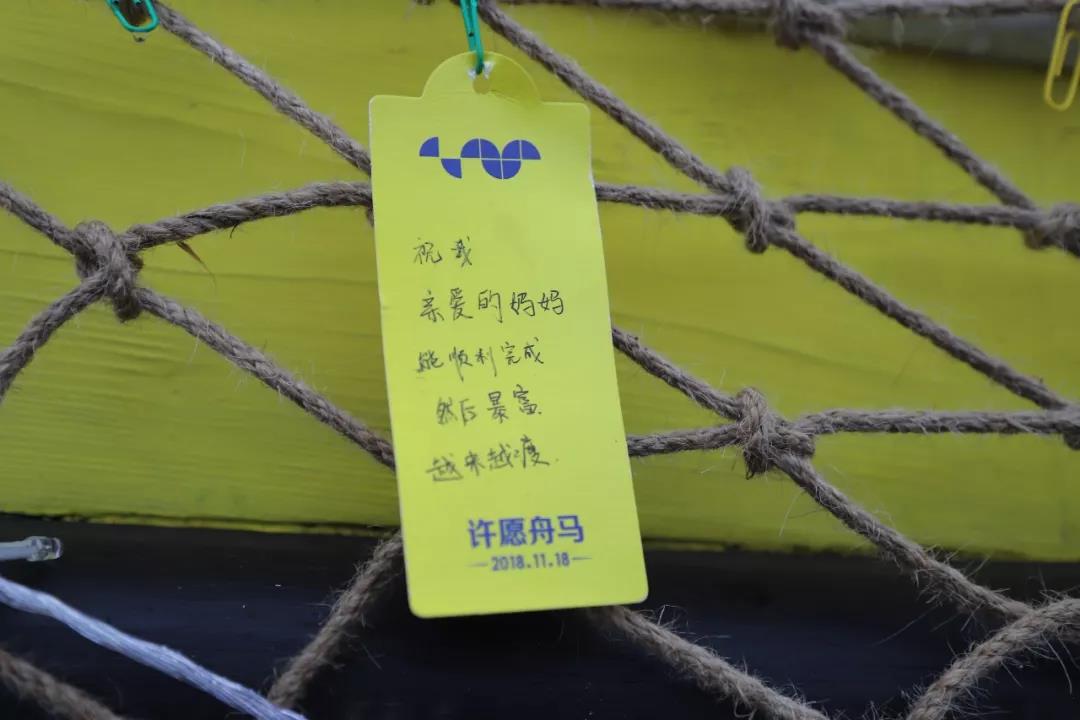 祝我
亲爱的妈妈
能顺利完成
然后暴富
越来越瘦.
许愿舟马
2018.11.18